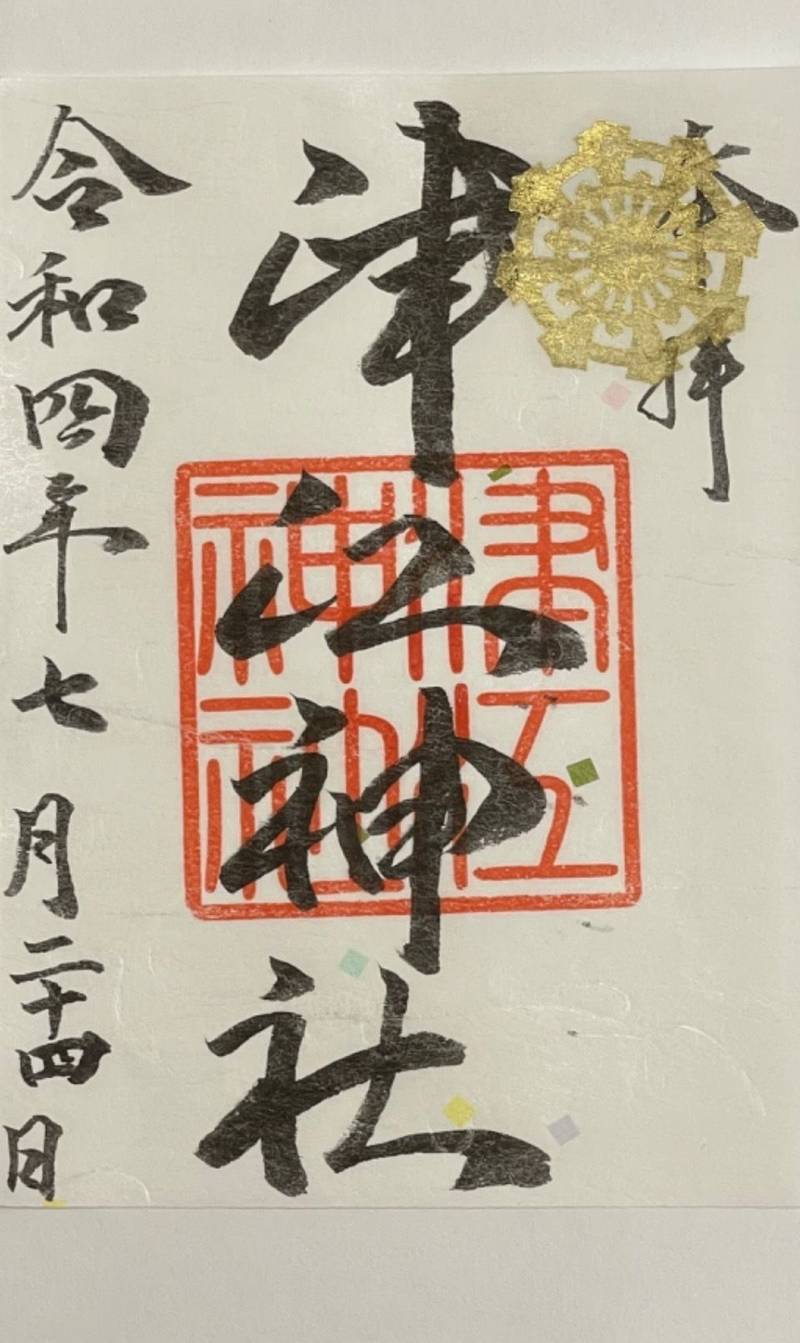 奉拝
津江神社
津江神社
令和四年七月二十四日